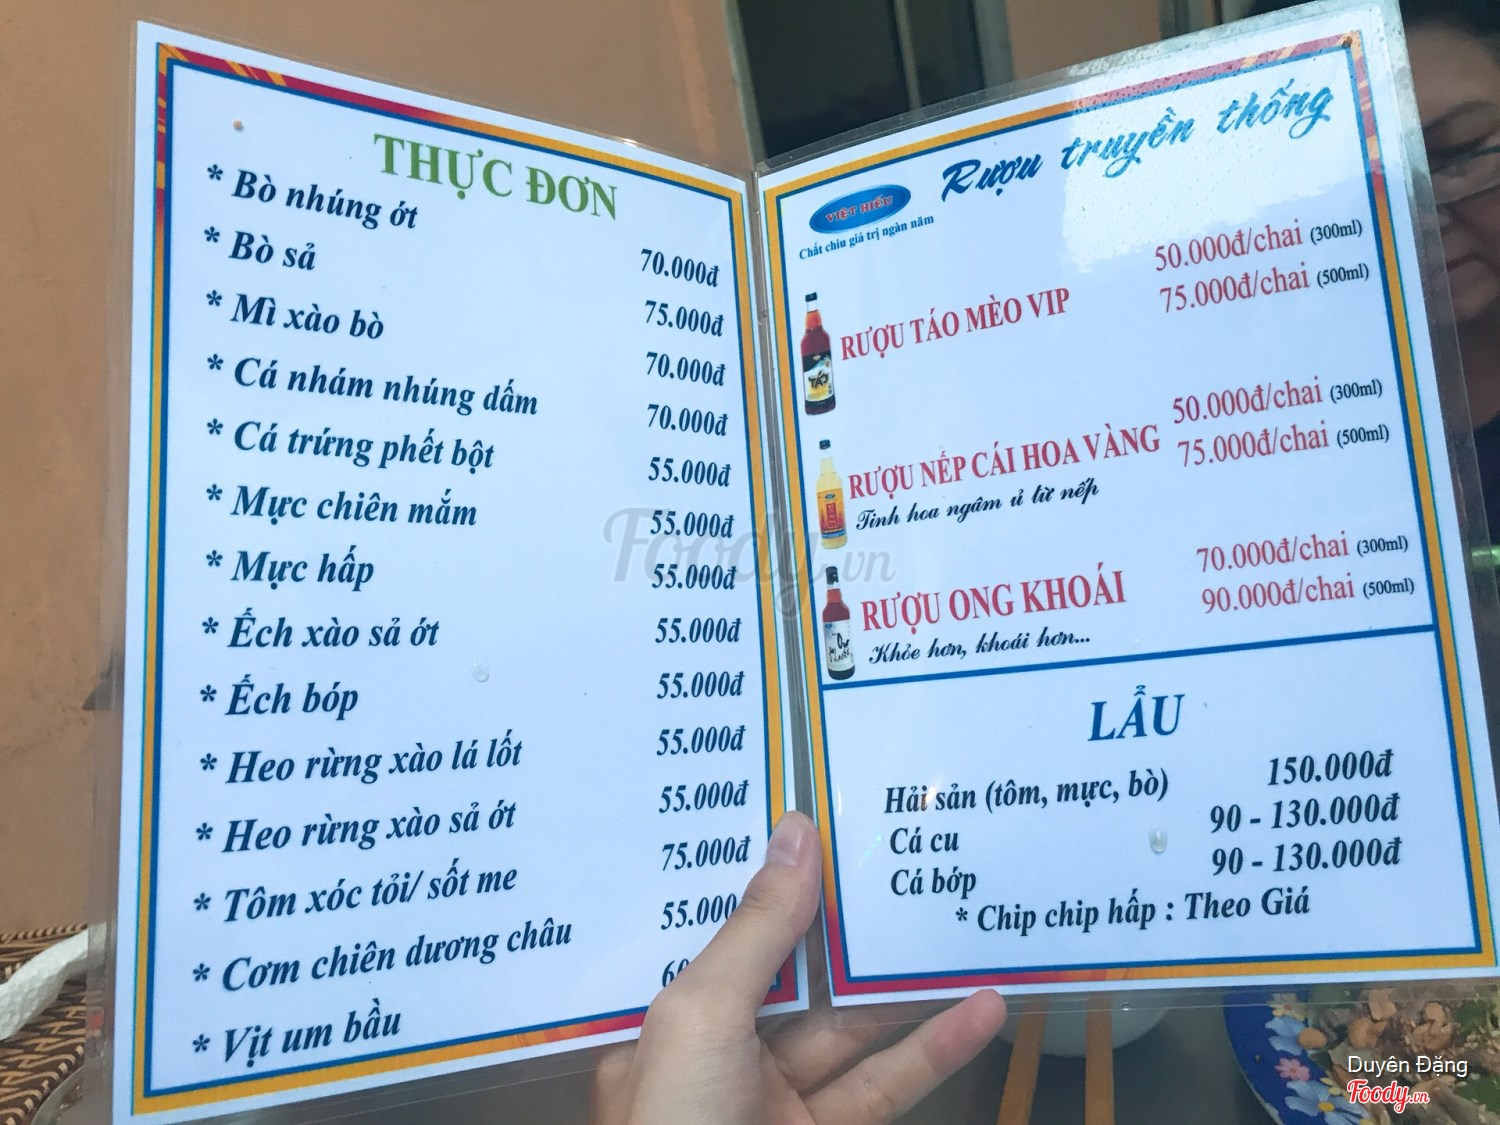 THỰC ĐƠN
* Bò nhúng ớt 70.000đ
* Bò sả 75.000đ
* Mì xào bò 70.000đ
* Cá nhám nhúng dấm 70.000đ
* Cá trứng phết bột 55.000đ
* Mực chiên mắm 55.000đ
* Mực hấp 55.000đ
* Ếch xào sả ớt 55.000đ
* Ếch bóp 55.000đ
* Heo rừng xào lá lốt 55.000đ
* Heo rừng xào sả ớt 55.000đ
* Tôm xóc tỏi/ sốt me 75.000đ
* Cơm chiên dương châu 55.000
* Vịt um bầu
Rượu truyền thống
VIỆT HIẾU
Chắt chiu giá trị ngàn năm
50.000đ/chai (300ml)
RƯỢU TÁO MÈO VIP 75.000đ/chai (500ml)
TÁO
50.000đ/chai (300ml)
RƯỢU NẾP CÁI HOA VÀNG 75.000đ/chai (500ml)
Tinh hoa ngâm ủ từ nếp
70.000đ/chai (300ml)
RƯỢU ONG KHOÁI 90.000đ/chai (500ml)
Khỏe hơn, khoái hơn...
LẨU
Hải sản (tôm, mực, bò) 150.000đ
Cá cu 90 - 130.000đ
Cá bớp 90 - 130.000đ
* Chip chip hấp : Theo Giá
Foody.vn
Duyên Đặng
Foody.vn